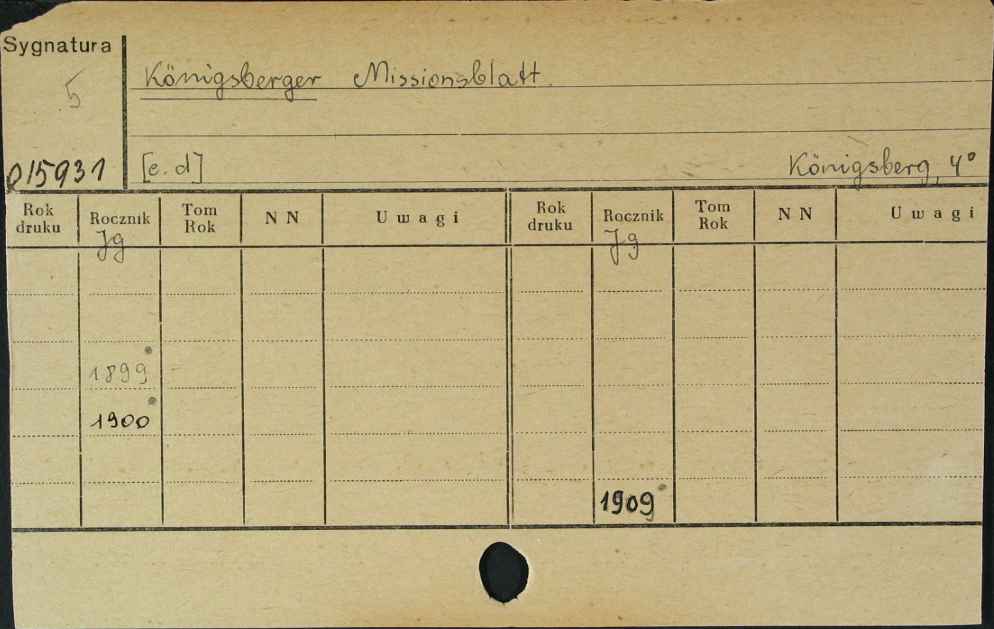 Sygnatura
5
Königsberger Missionsblatt.
015931
[e. d]
Königsberg, 4°
Rok druku Rocznik Tom Rok N N Uwagi Rok druku Rocznik Tom Rok N N Uwagi
Jg Jg
1899
1900
1909